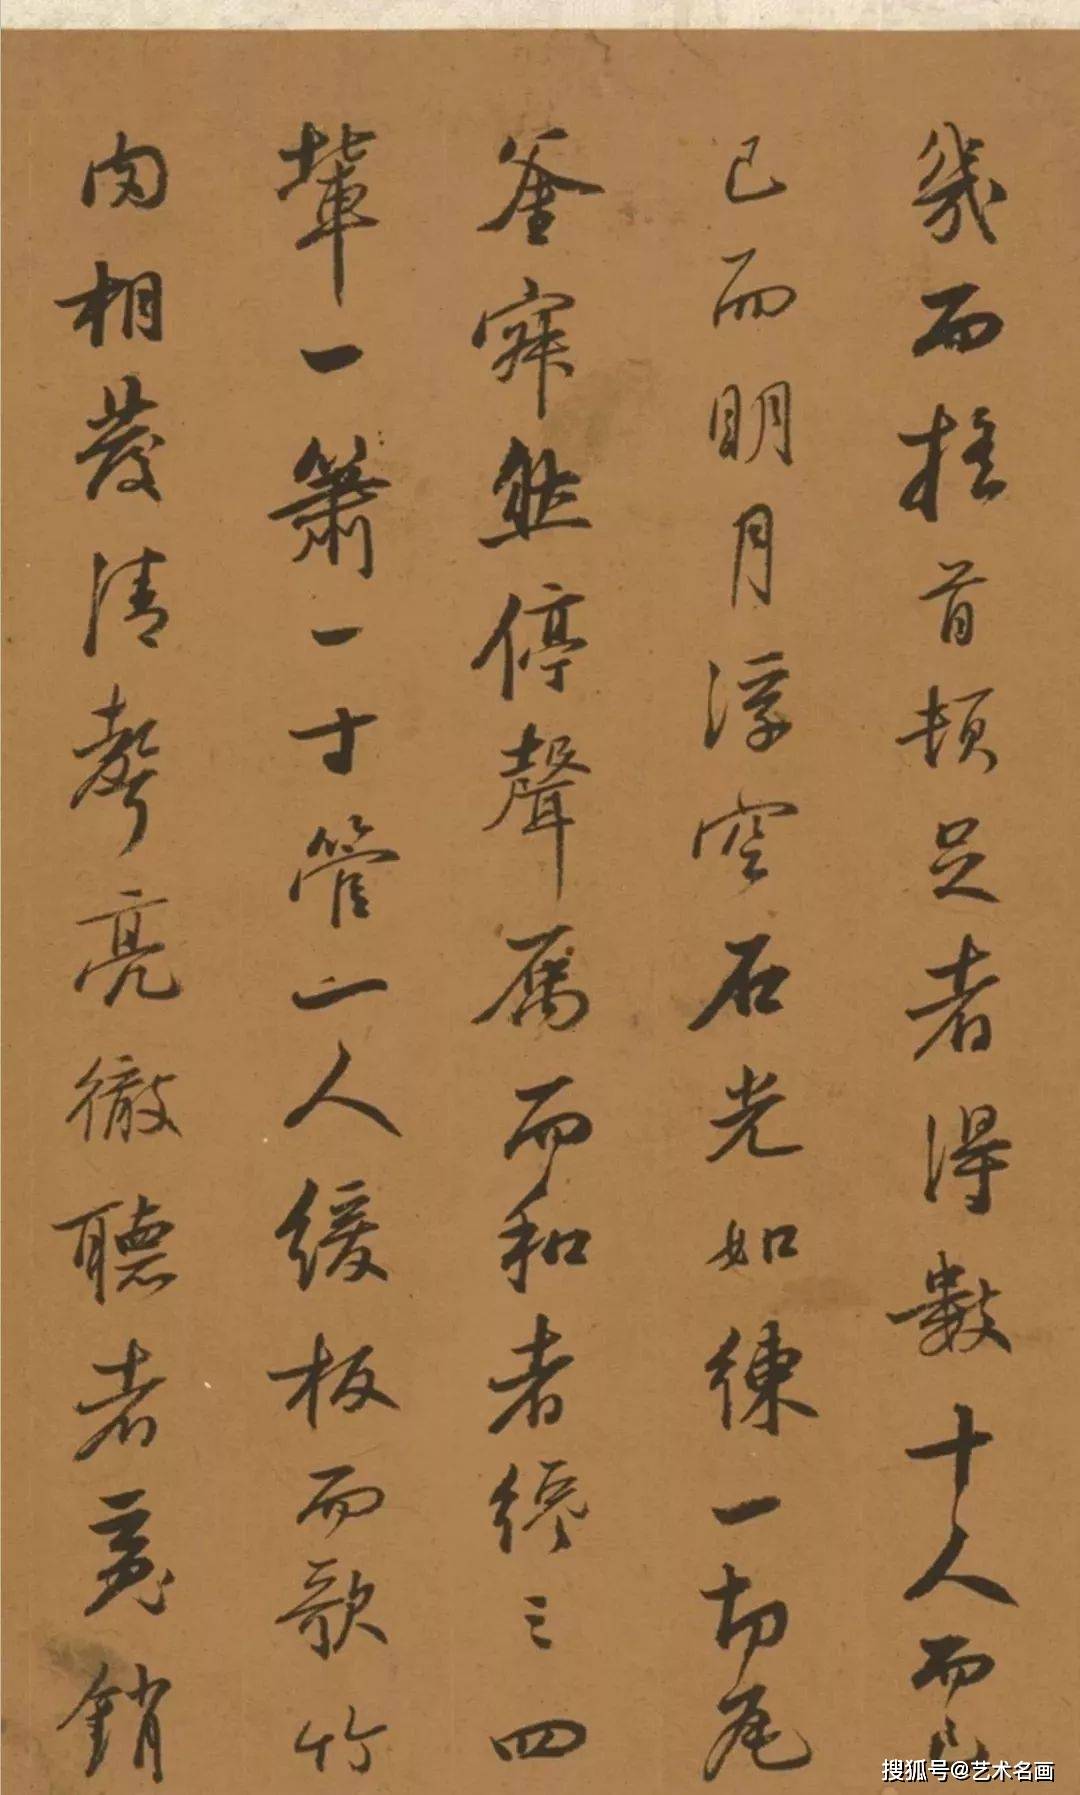 幾而搖首頓足者得數十人而已
已而明月浮空石光如練一切瓦
釜寂然停聲属而和者纔三四
輩一簫一寸管一人緩板而歌竹
肉相發清聲亮徹聽者魂銷
搜狐号@艺术名画